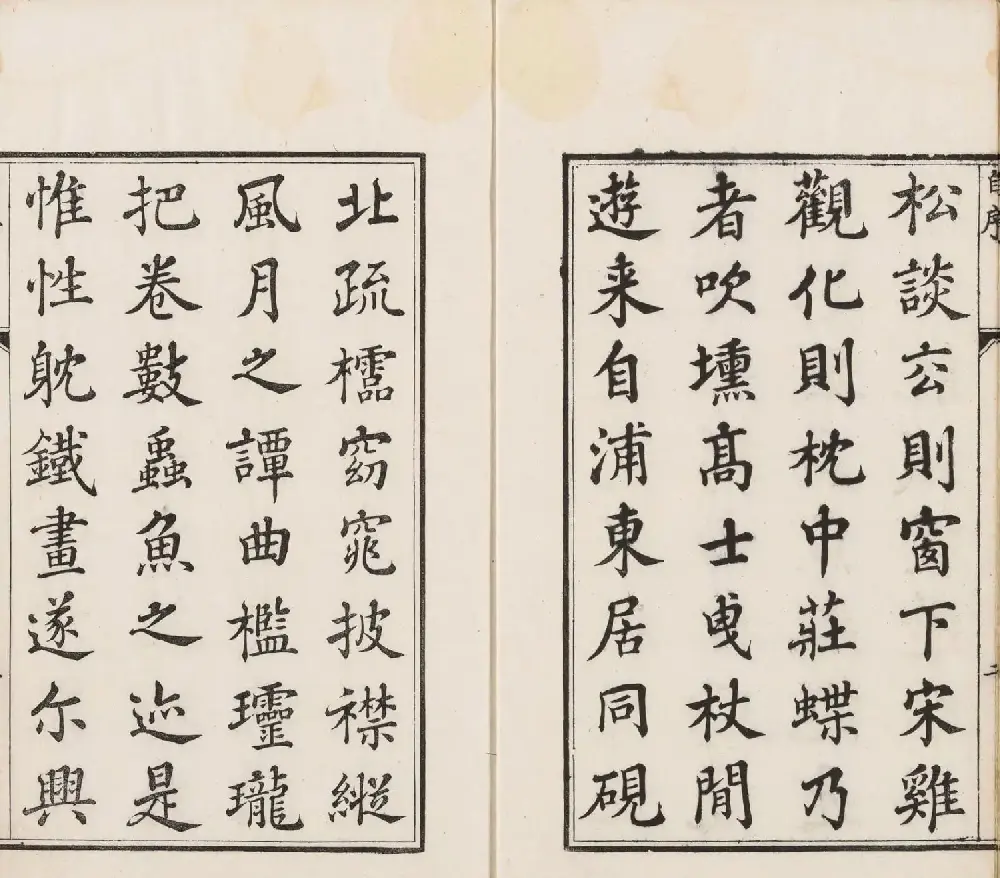 自序
二
松談玄則窗下宋雞
觀化則枕中莊蝶乃
者吹壎髙士曳杖閒
遊来自浦東居同硯
北疏櫺窈窕披襟縱
風月之譚曲檻瓏
把卷數蟲魚之迹是
惟性躭鐵畫遂尓興